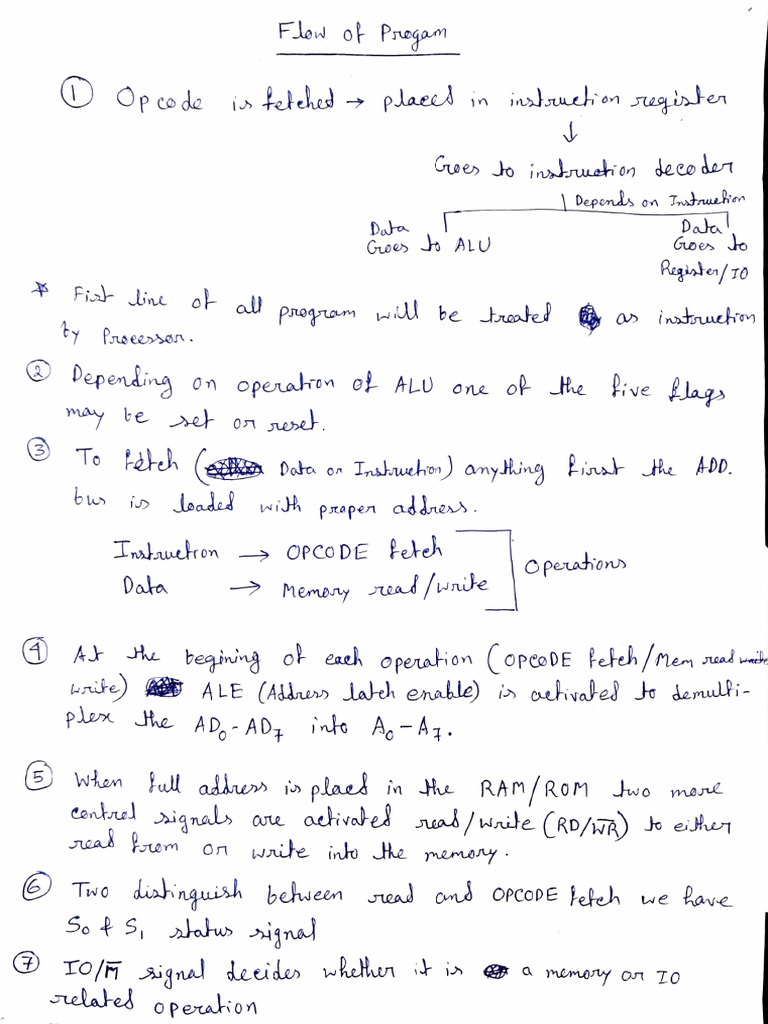 Flow of Progam
① Opcode is fetched → placed in instruction register
↓
Goes to instruction decoder
Depends on Instruction
Data
Goes to ALU
Data
Goes to
Register/IO
* Fist line of all program will be treated as instruction
by Processor.
② Depending on operation of ALU one of the five flags
may be set or reset.
③ To fetch (Data or Instruction) anything first the ADD.
bus is loaded with proper address.
Instruction → OPCODE fetch
Data → Memory read/write
Operations
④ At the begining of each operation (OPCODE fetch/Mem read write
write) ALE (Address latch enable) is activated to demulti-
plex the AD₀-AD₇ into A₀-A₇.
⑤ When full address is placed in the RAM/ROM two more
control signals are activated read/write (RD/W̅R̅) to either
read from or write into the memory.
⑥ Two distinguish between read and OPCODE fetch we have
S₀ & S₁ status signal
⑦ IO/M̅ signal decides whether it is a memory or IO
related operation